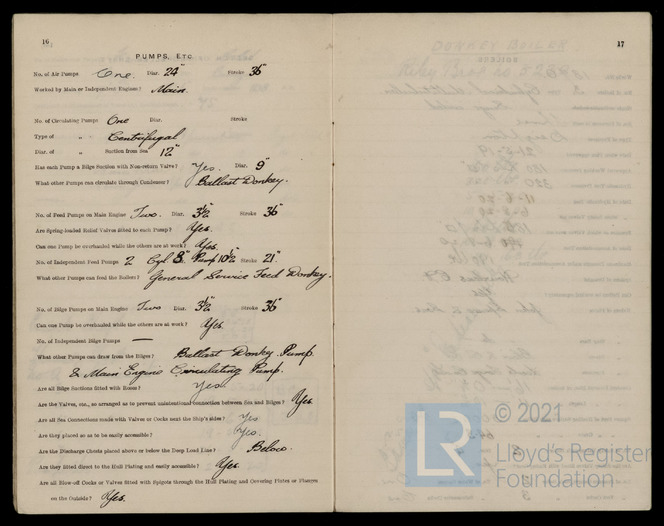 16
PUMPS, ETC.
No. of Air Pumps One. Diar. 24" Stroke 36"
Worked by Main or Independent Engines? Main.
No. of Circulating Pumps One Diar. Stroke
Type of " " Centrifugal
Diar. of " Suction from Sea 12"
Has each Pump a Bilge Suction with Non-return Valve? Yes. Diar. 9"
What other Pumps can circulate through Condenser? Ballast Donkey.
No. of Feed Pumps on Main Engine Two. Diar. 3½" Stroke 36"
Are Spring-loaded Relief Valves fitted to each Pump? Yes.
Can one Pump be overhauled while the others are at work? Yes.
No. of Independent Feed Pumps 2 Cyl 8" Pump 10½" Stroke 21"
What other Pumps can feed the Boilers? General Service Feed Donkey.
No. of Bilge Pumps on Main Engine Two Diar. 3½" Stroke 36"
Can one Pump be overhauled while the others are at work? Yes.
No. of Independent Bilge Pumps —
What other Pumps can draw from the Bilges? Ballast Donkey Pump.
& Main Engine Circulating Pump.
Are all Bilge Suctions fitted with Roses? Yes
Are the Valves, etc., so arranged as to prevent unintentional connection between Sea and Bilges? Yes.
Are all Sea Connections made with Valves or Cocks next the Ship's sides? Yes
Are they placed so as to be easily accessible? Yes.
Are the Discharge Chests placed above or below the Deep Load Line? Below.
Are they fitted direct to the Hull Plating and easily accessible? Yes.
Are all Blow-off Cocks or Valves fitted with Spigots through the Hull Plating and Covering Plates or Flanges
on the Outside? Yes.
17
DONKEY BOILER
© 2021
LR
Lloyd's Register
Foundation